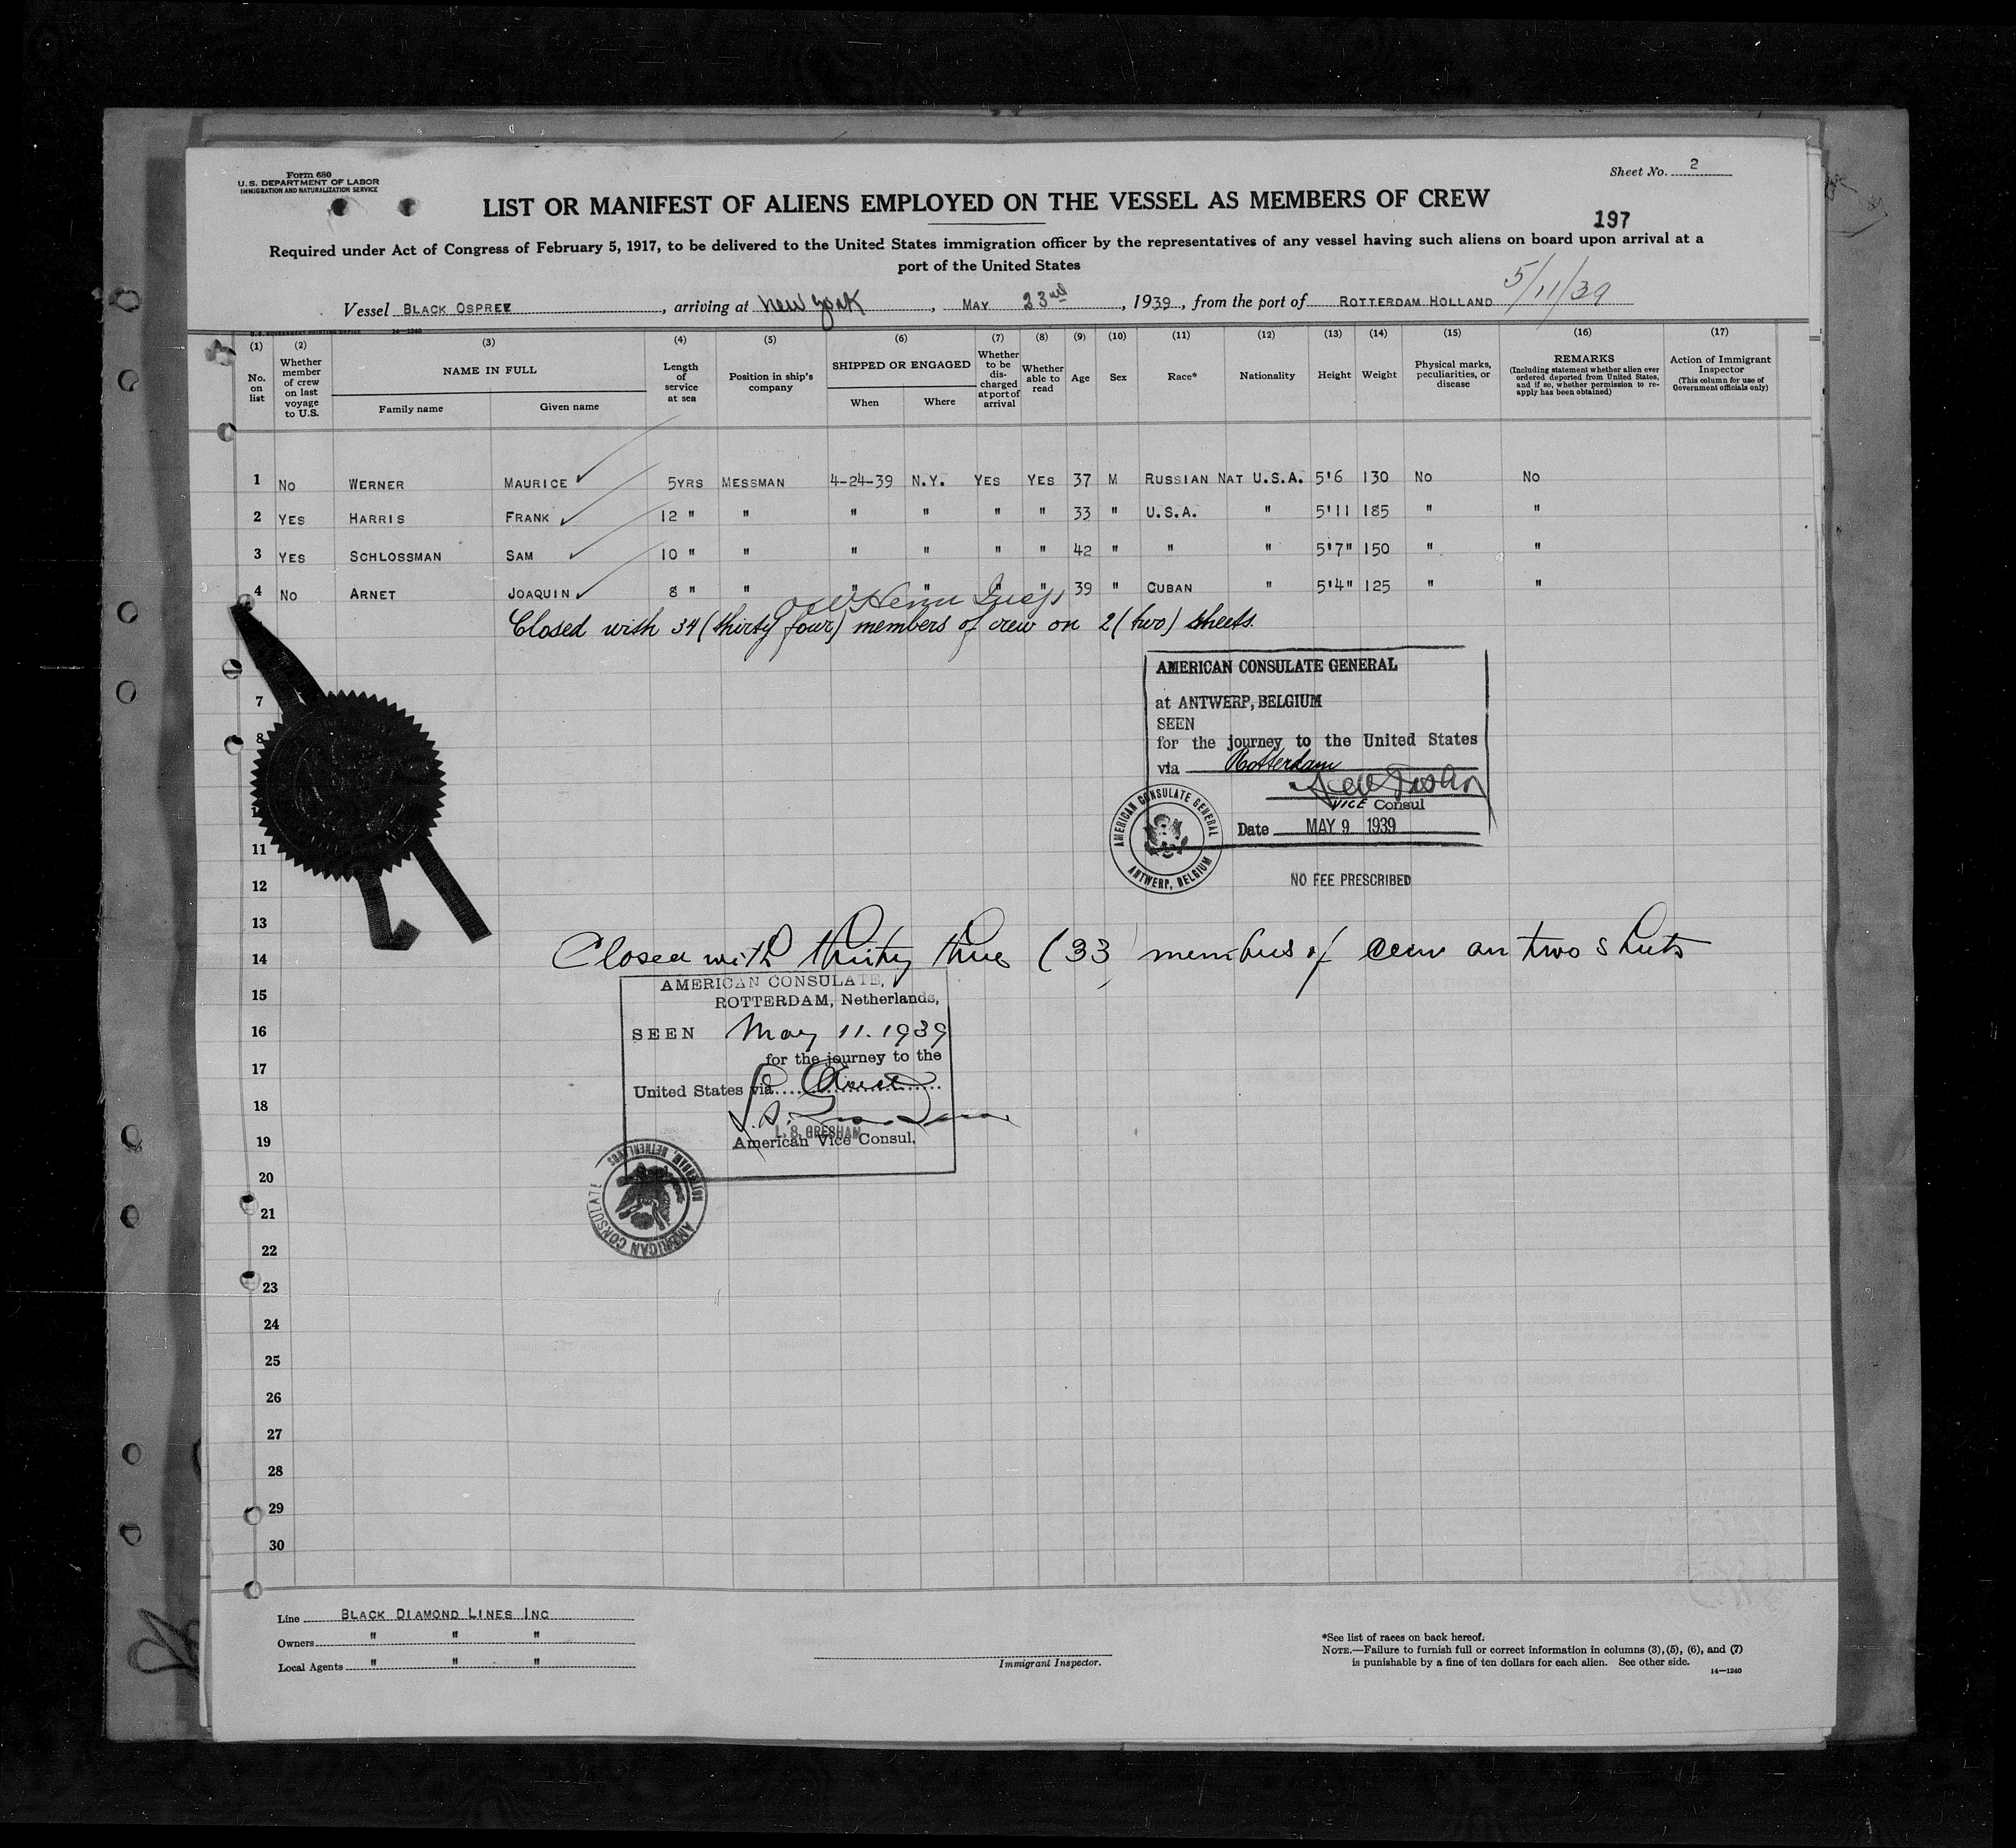 Form 680
U.S. DEPARTMENT OF LABOR
IMMIGRATION AND NATURALIZATION SERVICE
Sheet No. 2
LIST OR MANIFEST OF ALIENS EMPLOYED ON THE VESSEL AS MEMBERS OF CREW
197
Required under Act of Congress of February 5, 1917, to be delivered to the United States immigration officer by the representatives of any vessel having such aliens on board upon arrival at a
port of the United States
5/11/39
Vessel BLACK OSPREY, arriving at New York, MAY 23rd, 1939, from the port of ROTTERDAM HOLLAND
14-1240
(1) (2) (3) (4) (5) (6) (7) (8) (9) (10) (11) (12) (13) (14) (15) (16) (17)
No. on list
Whether member of crew on last voyage to U.S.
NAME IN FULL
Family name
Given name
Length of service at sea
Position in ship's company
SHIPPED OR ENGAGED
When
Where
Whether to be discharged at port of arrival
Whether able to read
Age
Sex
Race*
Nationality
Height
Weight
Physical marks, peculiarities, or disease
REMARKS
(Including statement whether alien ever ordered deported from United States, and if so, whether permission to reapply has been obtained)
Action of Immigrant Inspector
(This column for use of Government officials only)
1 NO WERNER MAURICE 5YRS MESSMAN 4-24-39 N.Y. YES YES 37 M RUSSIAN NAT U.S.A. 5'6 130 NO NO
2 YES HARRIS FRANK 12 " " " " " " 33 " U.S.A. " 5'11 185 " "
3 YES SCHLOSSMAN SAM 10 " " " " " " 42 " " " 5'7" 150 " "
4 NO ARNET JOAQUIN 8 " " " " " " 39 " CUBAN " 5'4" 125 " "
Closed with 34 (thirty four) members of crew on 2 (two) sheets.
AMERICAN CONSULATE GENERAL
at ANTWERP, BELGIUM
SEEN
for the journey to the United States
via Rotterdam
VICE Consul
Date MAY 9 1939
AMERICAN CONSULATE GENERAL
ANTWERP, BELGIUM
NO FEE PRESCRIBED
7
8
11
12
13
14
Closed with thirty three (33) members of crew on two sheets
AMERICAN CONSULATE,
ROTTERDAM, Netherlands,
SEEN May 11. 1939
for the journey to the
United States via
L. S. GRESHAM
American Vice Consul.
AMERICAN CONSULATE
ROTTERDAM, NETHERLANDS
15
16
17
18
19
20
21
22
23
24
25
26
27
28
29
30
Line BLACK DIAMOND LINES INC
Owners " " "
Local Agents " " "
Immigrant Inspector.
*See list of races on back hereof.
NOTE.—Failure to furnish full or correct information in columns (3), (5), (6), and (7)
is punishable by a fine of ten dollars for each alien. See other side.
14—1240